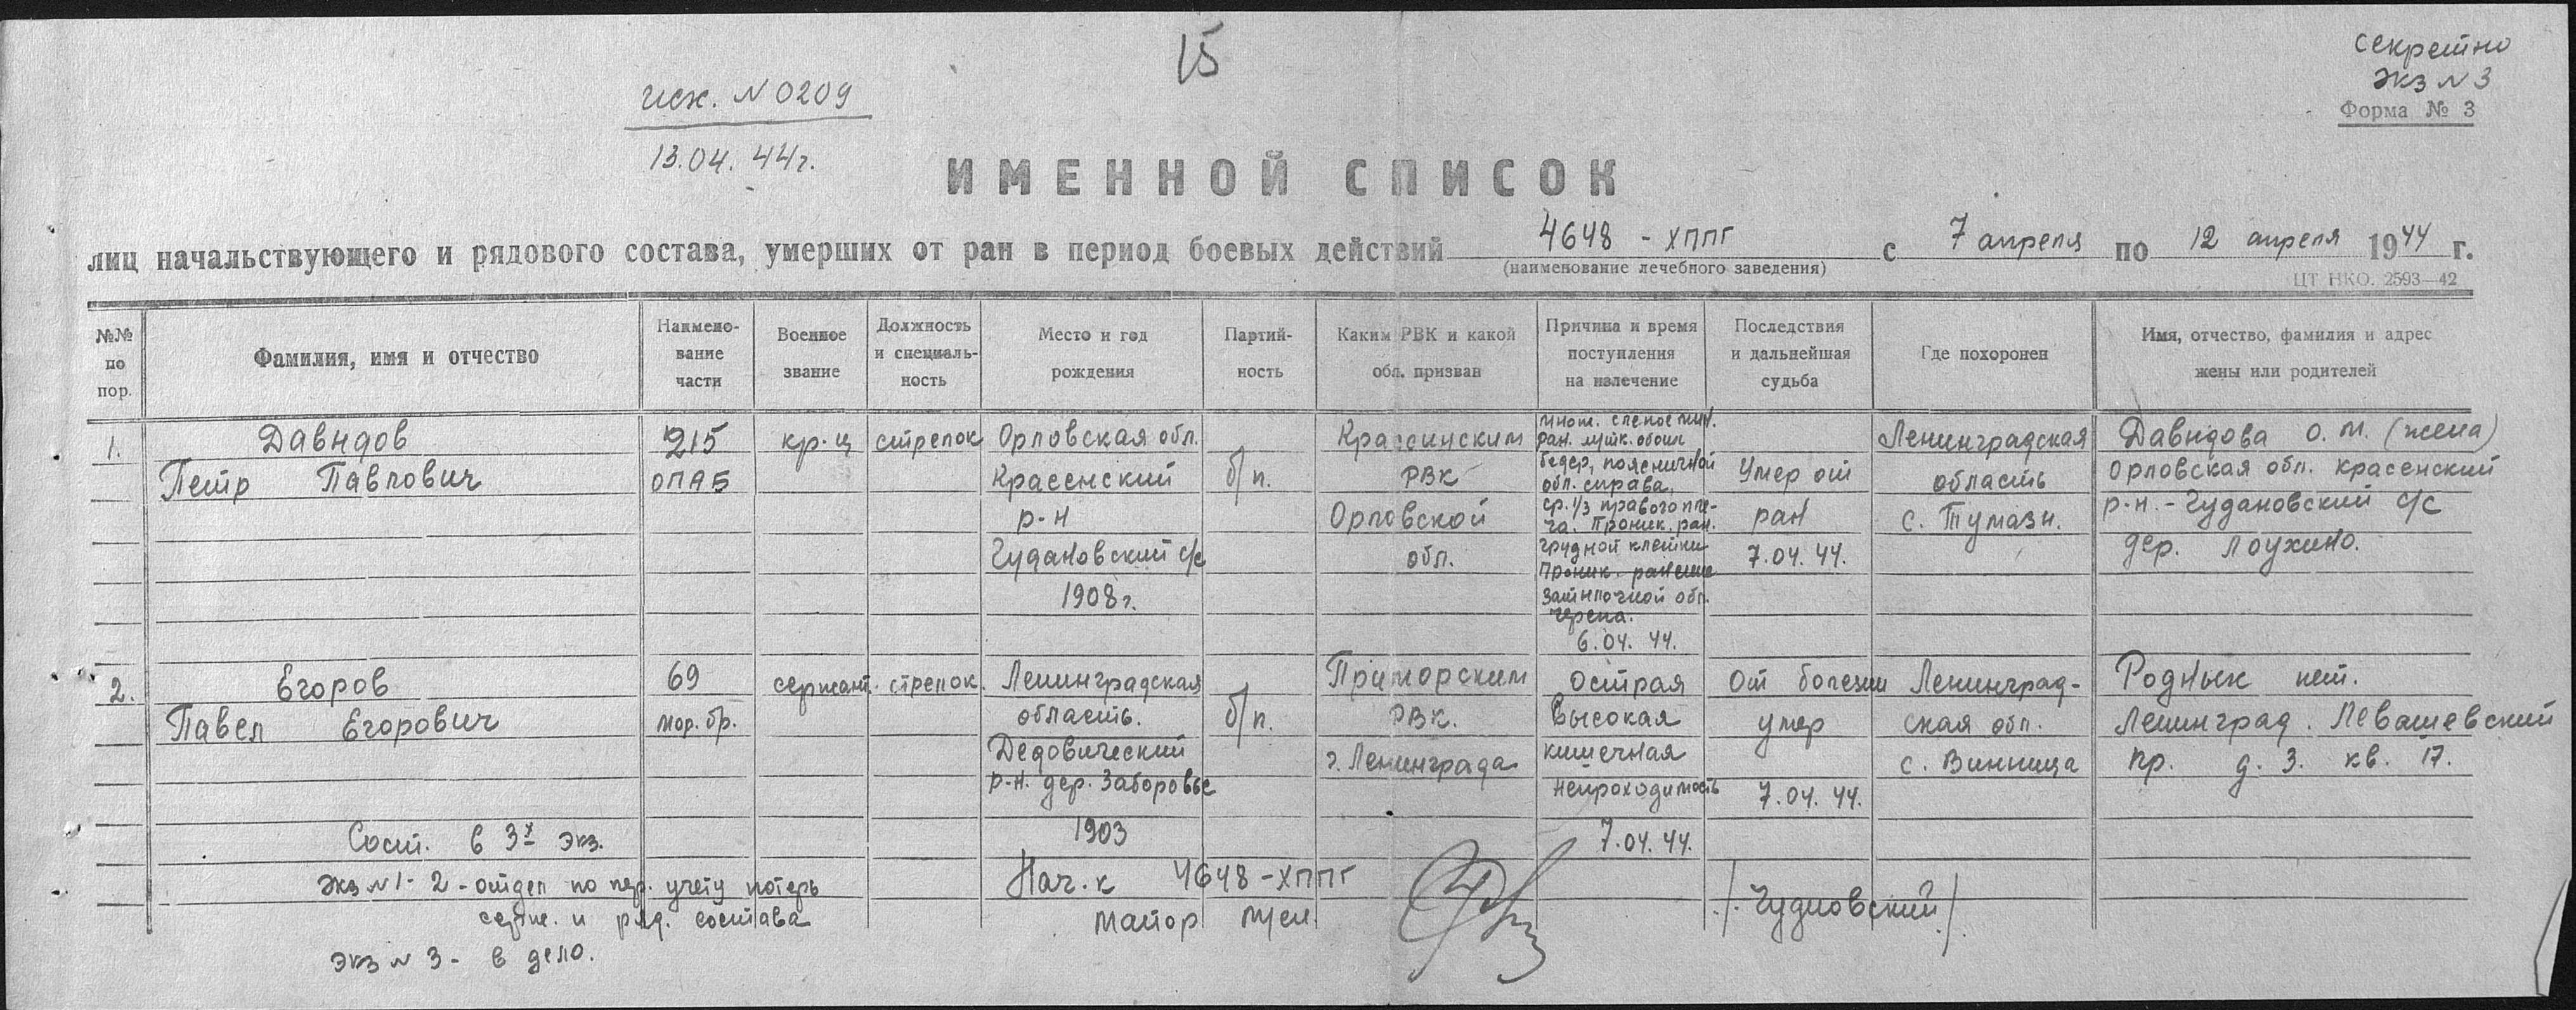 15
секретно
экз N 3
Форма № 3
исх. N 0209
13.04.44г.
ИМЕННОЙ СПИСОК
лиц начальствующего и рядового состава, умерших от ран в период боевых действий 4648 - ХППГ с 7 апреля по 12 апреля 1944 г.
(наименование лечебного заведения)
ЦТ НКО. 2593—42
№№ по пор.
Фамилия, имя и отчество
Наимено-
вание
части
Военное
звание
Должность
и специаль-
ность
Место и год
рождения
Партий-
ность
Каким РВК и какой
обл. призван
Причина и время
поступления
на излечение
Последствия
и дальнейшая
судьба
Где похоронен
Имя, отчество, фамилия и адрес
жены или родителей
1.
Давыдов
Петр Павлович
215
ОПАБ
кр-ц
стрелок
Орловская обл.
Красенский
р-н
Чудановский с/с
1908г.
б/п.
Крассинским
РВК
Орловской
обл.
множ. слепое мин.
ран. мягк. обоих
бедер, поясничной
обл. справа,
ср. 1/3 правого пле-
ча. Проник. ран.
грудной клетки
Проник. ранение
затылочной обл.
черепа.
6.04.44.
Умер от
ран
7.04.44.
Ленинградская
область
с. Тумазы.
Давыдова О.М. (жена)
Орловская обл. Красенский
р-н. - Чудановский с/с
дер. Лоухино.
2.
Егоров
Павел Егорович
69
мор. бр.
сержант.
стрелок.
Ленинградская
область.
Дедовический
р-н. дер. Заборовье
1903
б/п.
Приморским
РВК.
г. Ленинграда
Острая
высокая
кишечная
непроходимость
7.04.44.
От болезни
умер
7.04.44.
Ленинград-
ская обл.
с. Винница
Родных нет.
Ленинград. Левашевский
пр. д. 3. кв. 17.
Сост. в 3х экз.
Экз N 1-2 - отдел по пер. учету потерь
серж. и ряд. состава
Экз N 3 - в дело.
Нач-к 4648 - ХППГ
майор м/сл.
/. Чудновский ./